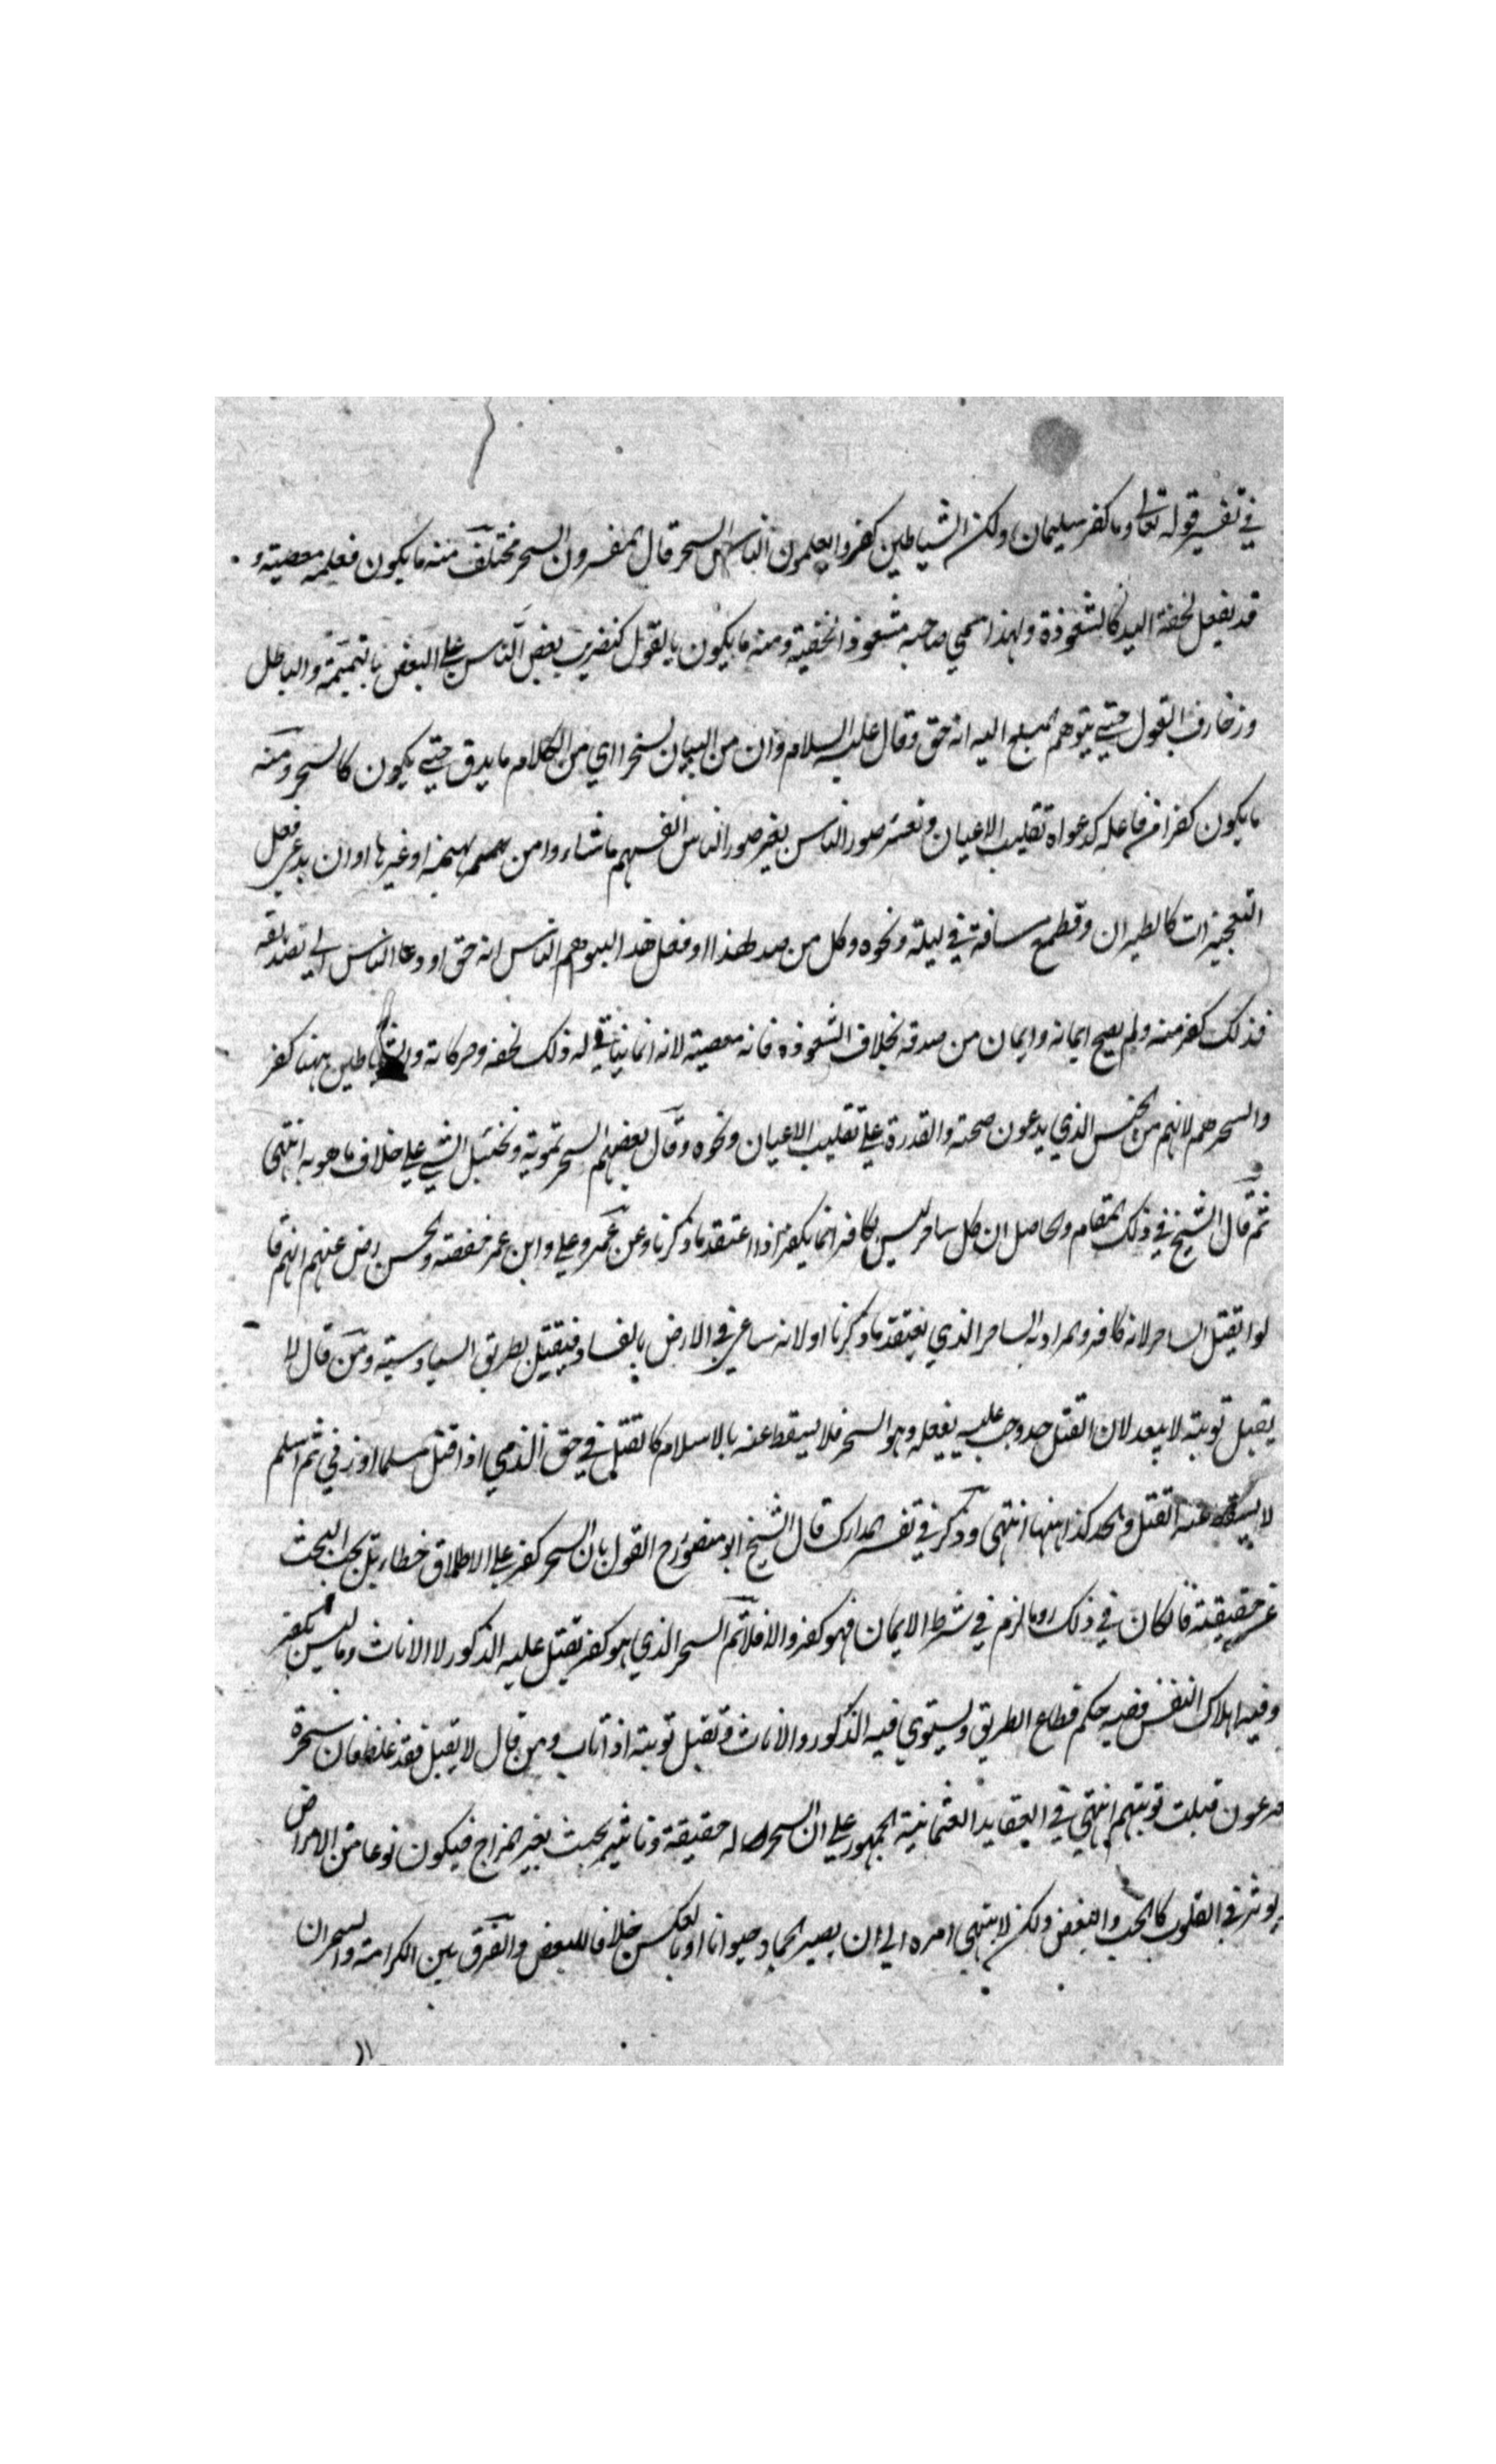 في تفسير قوله تعالى وما كفر سليمان ولكن الشياطين كفروا يعلمون الناس السحر قال المفسرون السحر مختلف منه ما يكون فعله معصية و
قد يفعل لخفة اليد كالشعوذة ولهذا سمي صاحبه مشعوذا لخفته ومنه ما يكون بالقول كتضريب بعض الناس على البعض بالنميمة والباطل
وزخارف القول حتى يتوهم المبلغ اليه انه حق وقال عليه السلام وان من البيان لسحرا اي من الكلام ما يدق حتى يكون كالسحر ومنه
ما يكون كفرا من فاعله كدعواه تقليب الاعيان وتغير صور الناس بغير صور الناس انفسهم ما شاءوا من بهيمة او غيرها او ان يدعي فعل
المعجزات كالطيران وقطع مسافة في ليلة ونحوه وكل من صدر هذا او فعل هذا ليوهم الناس انه حق او دعا الناس الى تصديقه
فذلك كفر منه ولم يصح ايمانه وايمان من صدقه بخلاف الشعوذة فانه معصية لانه انما يتأتى له ذلك لخفة وحركاته والشياطين ههنا كفر
والسحرهم لانهم من الجنس الذي يدعون صحته والقدرة على تقليب الاعيان ونحوه وقال بعضهم السحر تمويه وتخييل الشي على خلاف ما هو به انتهى
ثم قال الشيخ في ذلك المقام والحاصل ان كل ساحر ليس بكافر انما يكفر اذا اعتقد ما ذكرنا وعن عمر وعلي وابن عمر وحفصة والحسن رضى عنهم انهم قا
لوا يقتل الساحر لانه كافر والمراد به الساحر الذي يعتقد ما ذكرنا او لانه ساعي في الارض بالفساد فيقتل بطريق السياسة ومن قال لا
يقبل توبته لا يبعد لان القتل حد وجب عليه بفعله وهو السحر فلا يسقط عنه بالاسلام كالقتل في حق الذمي اذا قتل مسلما او زنى ثم اسلم
لا يسقط عنه القتل والحد كذا ههنا انتهى وذكر في تفسير المدارك قال الشيخ ابو منصور رح القول بان السحر كفر على الاطلاق خطاء بل يجب البحث
عن حقيقته فان كان في ذلك رد ما لزم في شرط الايمان فهو كفر والا فلا ثم السحر الذي هو كفر يقتل عليه الذكور لا الاناث وما ليس بكفر
وفيه اهلاك النفس ففيه حكم قطاع الطريق ويستوي فيه الذكور والاناث وتقبل توبته اذا تاب ومن قال لا يقبل فقد غلط فان سحرة
فرعون قبلت توبتهم انتهى في العقايد العثمانية الجمهور على ان السحر له حقيقة وتاثير بحيث يغير المزاج فيكون نوعا من الامراض
يوثر في القلوب كالحب والبغض ولكن لا ينتهي امره الى ان يصير الجماد حيوانا او بالعكس خلافا للبعض والفرق بين الكرامة والسحر ان